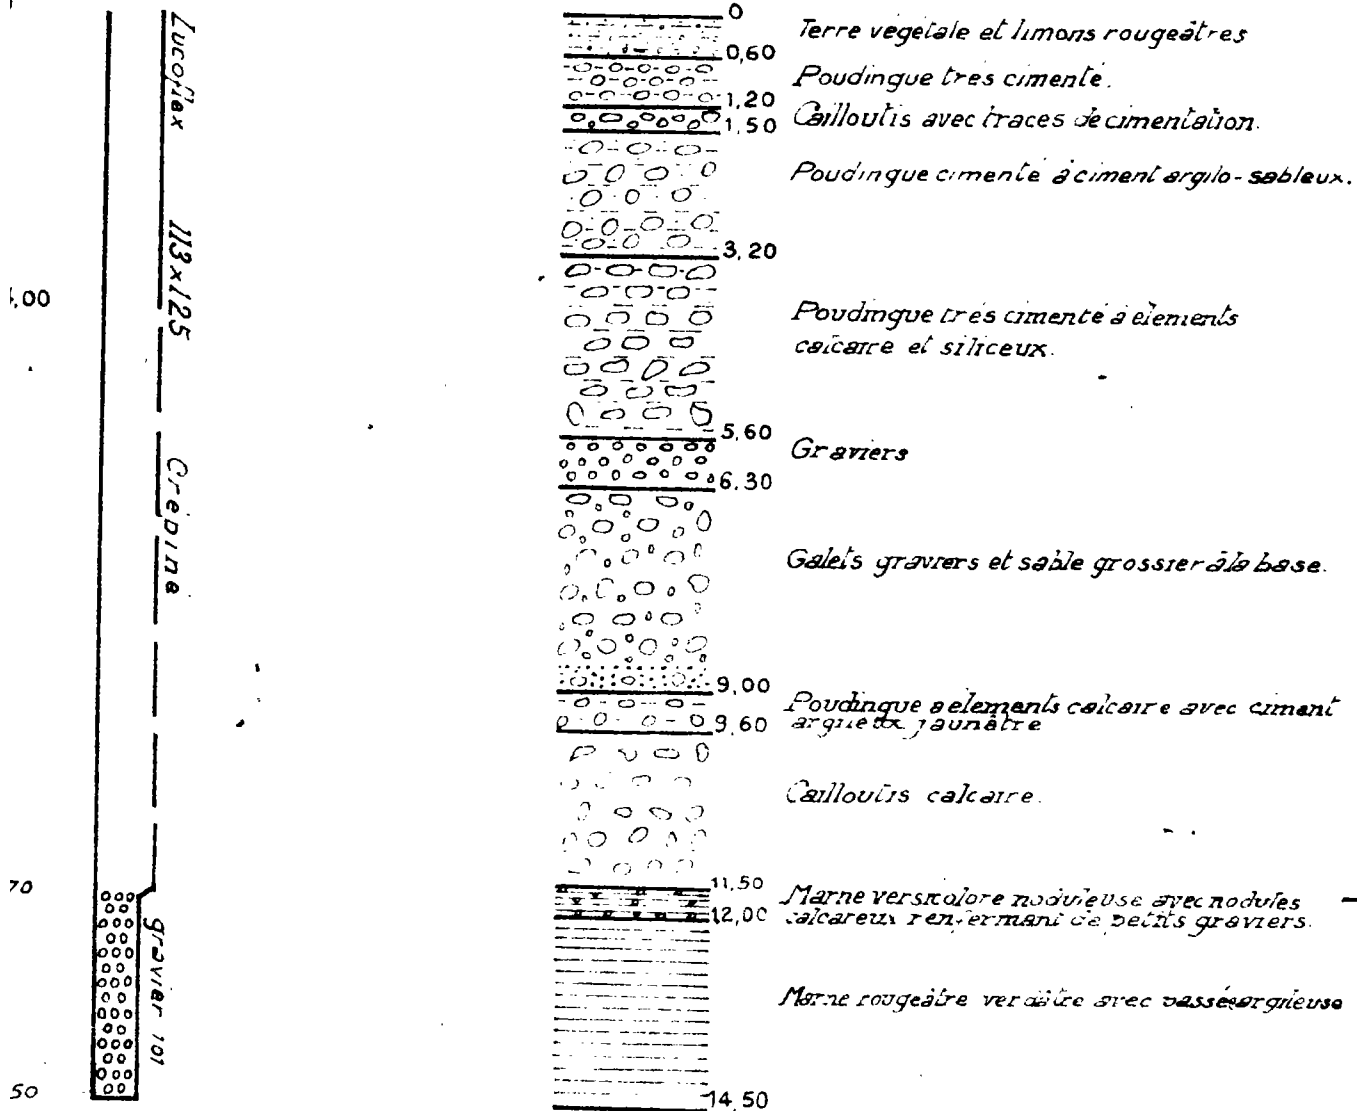 Lucoflex 113x125 Crépine
gravier 101
,00
70
50
0
Terre végétale et limons rougeâtres
0,60
Poudingue très cimenté.
1,20
Cailloutis avec traces de cimentation.
1,50
Poudingue cimenté à ciment argilo-sableux.
3,20
Poudingue très cimenté à élements
calcaire et siliceux.
5,60
Graviers
6.30
Galets graviers et sable grossier à la base.
9,00
Poudingue a elements calcaire avec ciment
argileux jaunâtre
9,60
Cailloutis calcaire.
11,50
Marne versicolore noduleuse avec nodules
calcareux renfermant de petits graviers.
12,00
Marne rougeâtre verdâtre avec passée argileuse
14,50